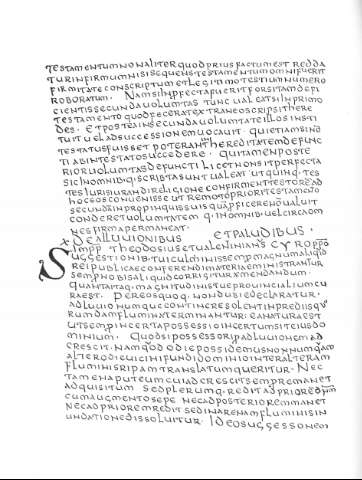 TESTAMENTUM NON ALITER QUOD PRIUS FACTUM EST REDDA
TUR INFIRMUM NISI SEQUENS TESTAMENTUM OMNI FUERIT
FIRMITATE CONSCRIPTUM ET LEGITIMO TESTIUM NUMERO
ROBORATUM. NAM SI INPFECTA FUERIT FORSITAN DEFI
CIENTIS SECUNDA UOLUMTAS TUNC UALEAT SI IN PRIMO
TESTAMENTO QUOD DECORAT EXTRANEOS SCRIPSIT HERE
DES. ET POSTEA IN SECUNDA UOLUMTATE ILLOS INSTI
TUIT UEL AD SUCCESSIONEM UOCAUIT. QUI ETIAM SI NO
TESTATUS FUISSET POTERANT IN HEREDITATEM DEFUNC
TI AB INTESTATO SUCCEDERE. QUI TAMEN POSTE
RIOR UOLUMTAS DEFUNCTI LICET NON SIT PERFECTA
SIC IN OMNIB. Q. SCRIPTA SUNT UALEAT UT QUINQ. TES
TES IURISIURANDI RELIGIONE CONFIRMENT TESTORE AD
HOC EOS CONUENISSE UT REMOTO PRIORI TESTAMENTO
SECUNDA IN PROPINQUIS SUIS QUA PFICERE NON UALUIT
CONDERET UOLUMTATEM Q. IN OMNIB. UEL CIRCA OM
NES FIRMA PERMANEAT.
X DE ALLUUIONIBUS ET PALUDIBUS.
IMPP. THEODOSIUS ET UALENTINIANS CYRO PPO
SUGGESTIONIB. TUI CULMINIS SEMP MAGNUM ALIQID
REIPUBLICAE CONFERENDI MATERIA EMINISTRANTUR
SEMP NOBIS ALIQUID CORRIGITUR AMENDANDUM.
QUANTA ITAQ. MAGNITUDINIS TUE PROUINCIALIUM CU
RA EST. PER EOS QUOQ. NON DUBIE DECLARATUR.
AD LUUIONUM QUE CONTINERE SOLENT IN PREDIIS Q
RUM DAM FLUMINA TERMINANTUR: EA NATURA EST
UT SEMP INCERTA POSSESSIO INCERTUM SIT EIUS DO
MINIUM. QUOD SI POSSESSORI P ADLUUIONEM AD
CRESCIT. NAM QUOD ODIE POSSIDEMUS NON NUMQUAM
ALTERO DIE UICINI FUNDI DOMINIO INTER ALTERAM
FLUMINIS RIPAM TRANSLATUM QUERITUR. NEC
TAMEN APUT EUM CUI ADCRESCIT SEMP REMANET
ADQUISITUM SED PLERUMQ. REDIT AD PRIOREM DNM
CUM AUGMENTO SEPE NEC AD POSTERIOREM MANET
NEC AD PRIOREM REDIT SED IN ARENAM FLUMINIS IN
UNDATIONE DISSOLUITUR. IDEO SUGGESSIONEM